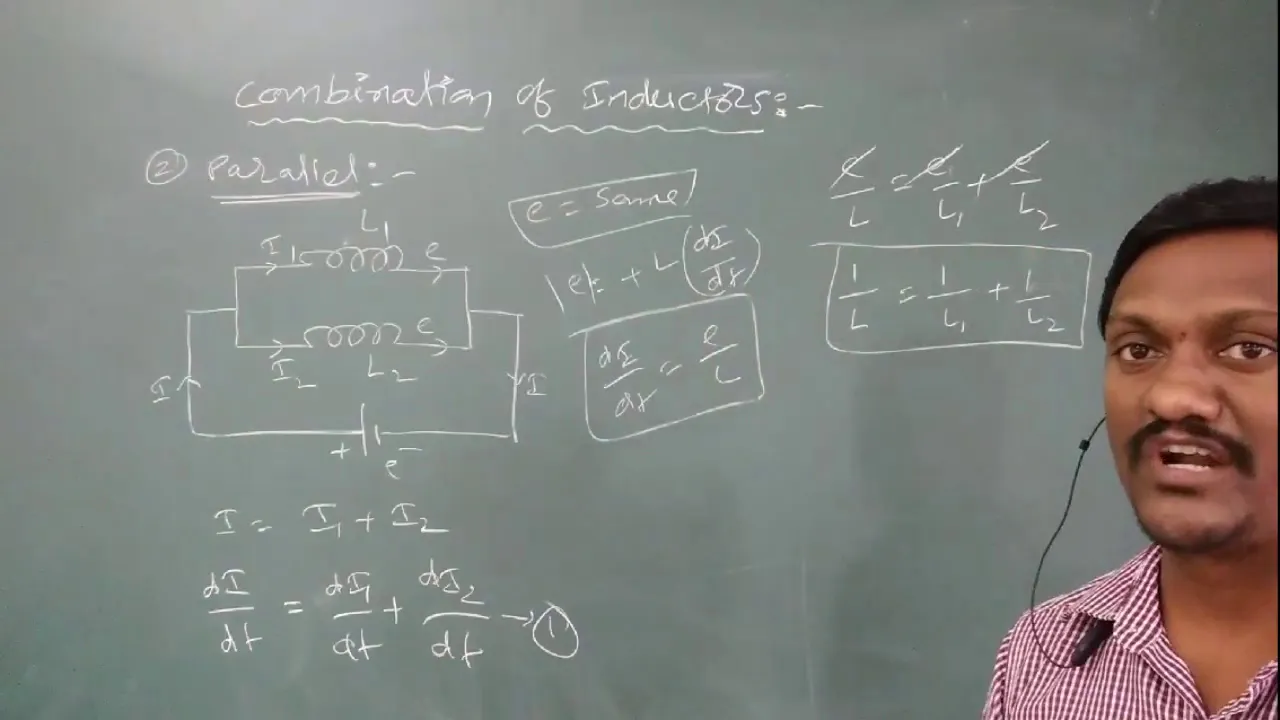 Combination of Inductors:-
② Parallel:-
L₁
I₁ e
I₂ L₂ e
I I
+ e -
I = I₁ + I₂
dI/dt = dI₁/dt + dI₂/dt → ①
e = Same
|e| = + L (dI/dt)
dI/dt = e/L
e/L = e/L₁ + e/L₂
1/L = 1/L₁ + 1/L₂